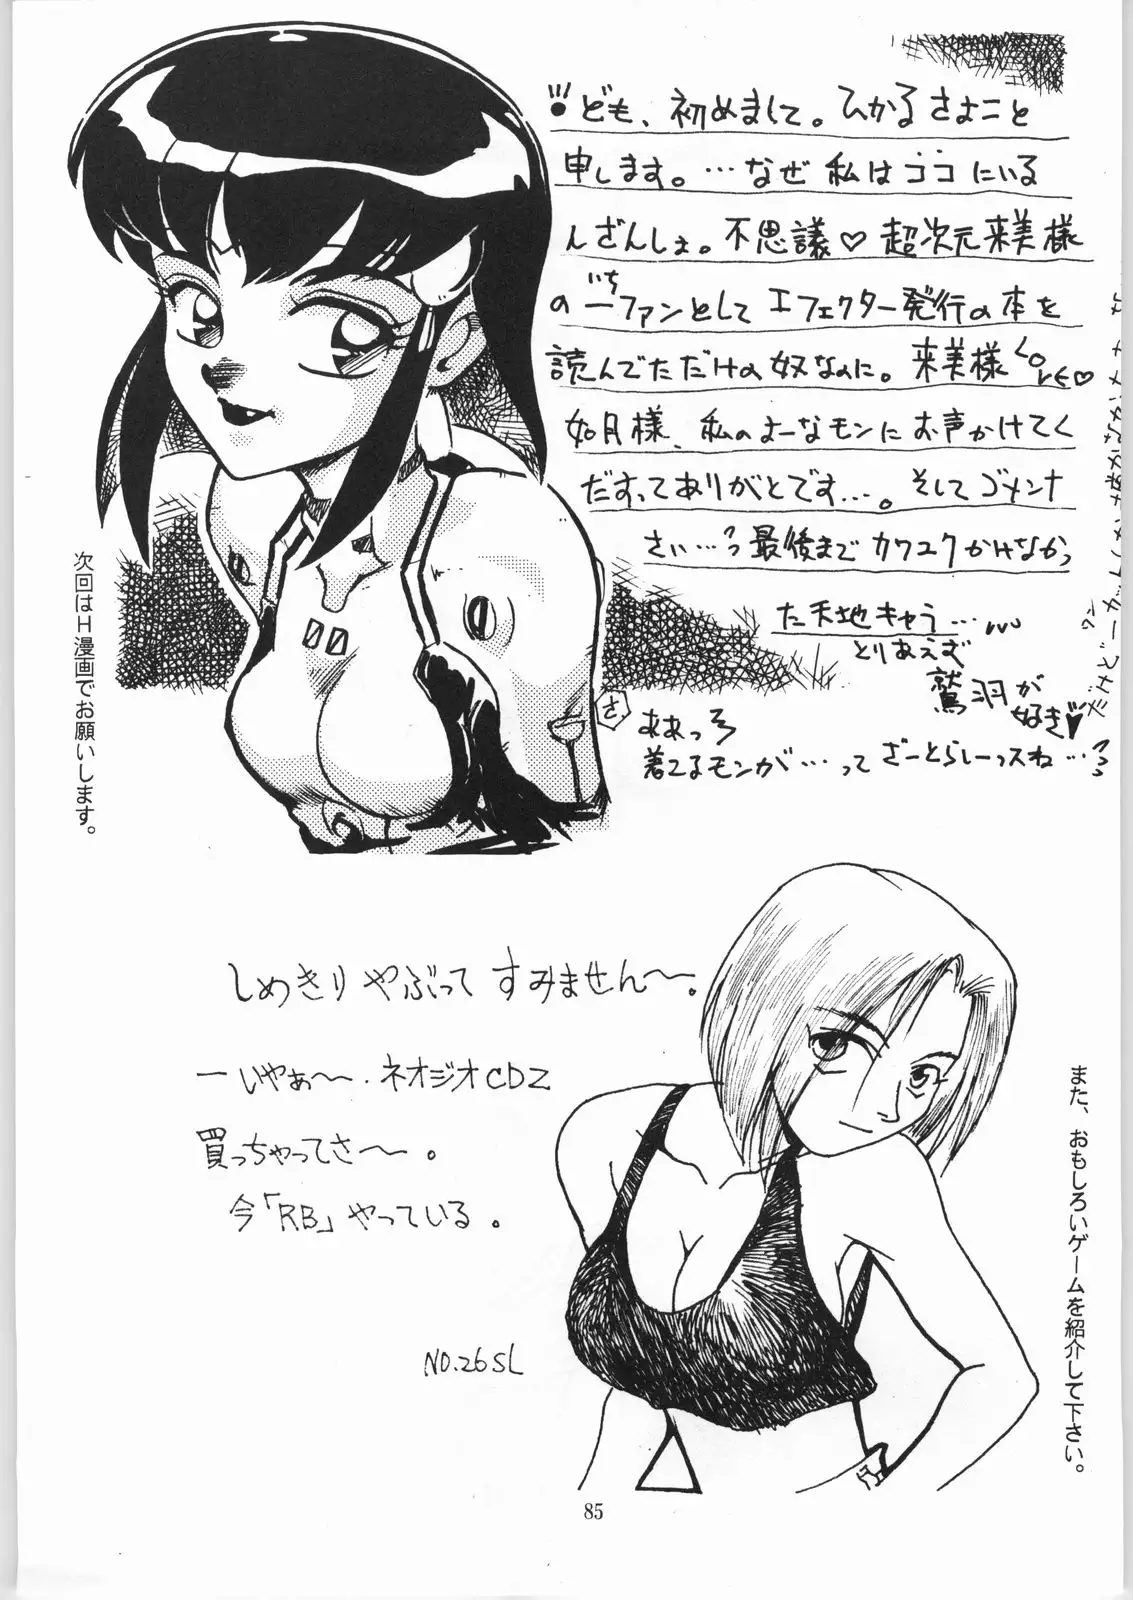 ども、初めまして。ひかるさよこと
申します。…なぜ私はココにいる
んざんしょ。不思議♡超次元来美様
の一ファンとしてエフェクター発行の本を
いち
読んでただけの奴なのに。来美様LOVE♡
如月様、私のよーなモンにお声かけてく
ださってありがとです…。そしてゴメンナ
さい…最後までカワユクかけなかっ
た天地キャラ…
とりあえず
鷲羽が
好き♥
ああっ
着てるモンが…って ざーとらしーっスね…
さ
00
次回はH漫画でお願いします。
しめきりやぶってすみません〜。
ーいやぁ〜.ネオジオCDZ
買っちゃってさ〜。
今「RB」やっている。
NO.26SL
また、おもしろいゲームを紹介して下さい。
85